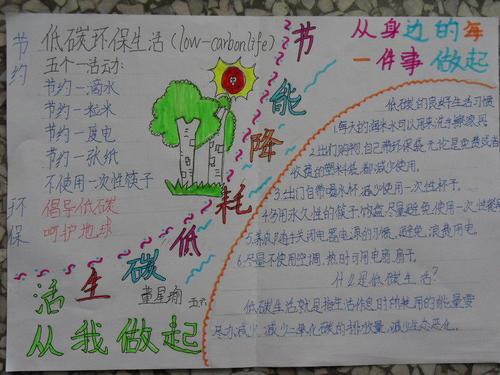 节约
环保
低碳环保生活(low-carbonlife)
五个一活动:
节约一滴水
节约一粒米
节约一度电
节约一张纸
不使用一次性筷子
倡导低碳
呵护地球
节能降耗
低碳生活
董星
从我做起
从身边的每
一件事做起
低碳的良好生活习惯
1.每天的淘米水可以用来洗手擦家具
2.出门购物,自己带环保袋,无论是免费或者
收费的塑料袋,都减少使用。
3.出门自带喝水杯,减少使用一次性杯子。
4.多用永久性的筷子、饭盒,尽量避免使用一次性
5.养成随手关闭电器电源的习惯,避免浪费用电。
6.尽量不使用空调,热时可用电扇
什么是低碳生活?
低碳生活就是指生活作息时所耗用的能量要
尽力减少,减少二氧化碳的排放量,减少生态恶化。